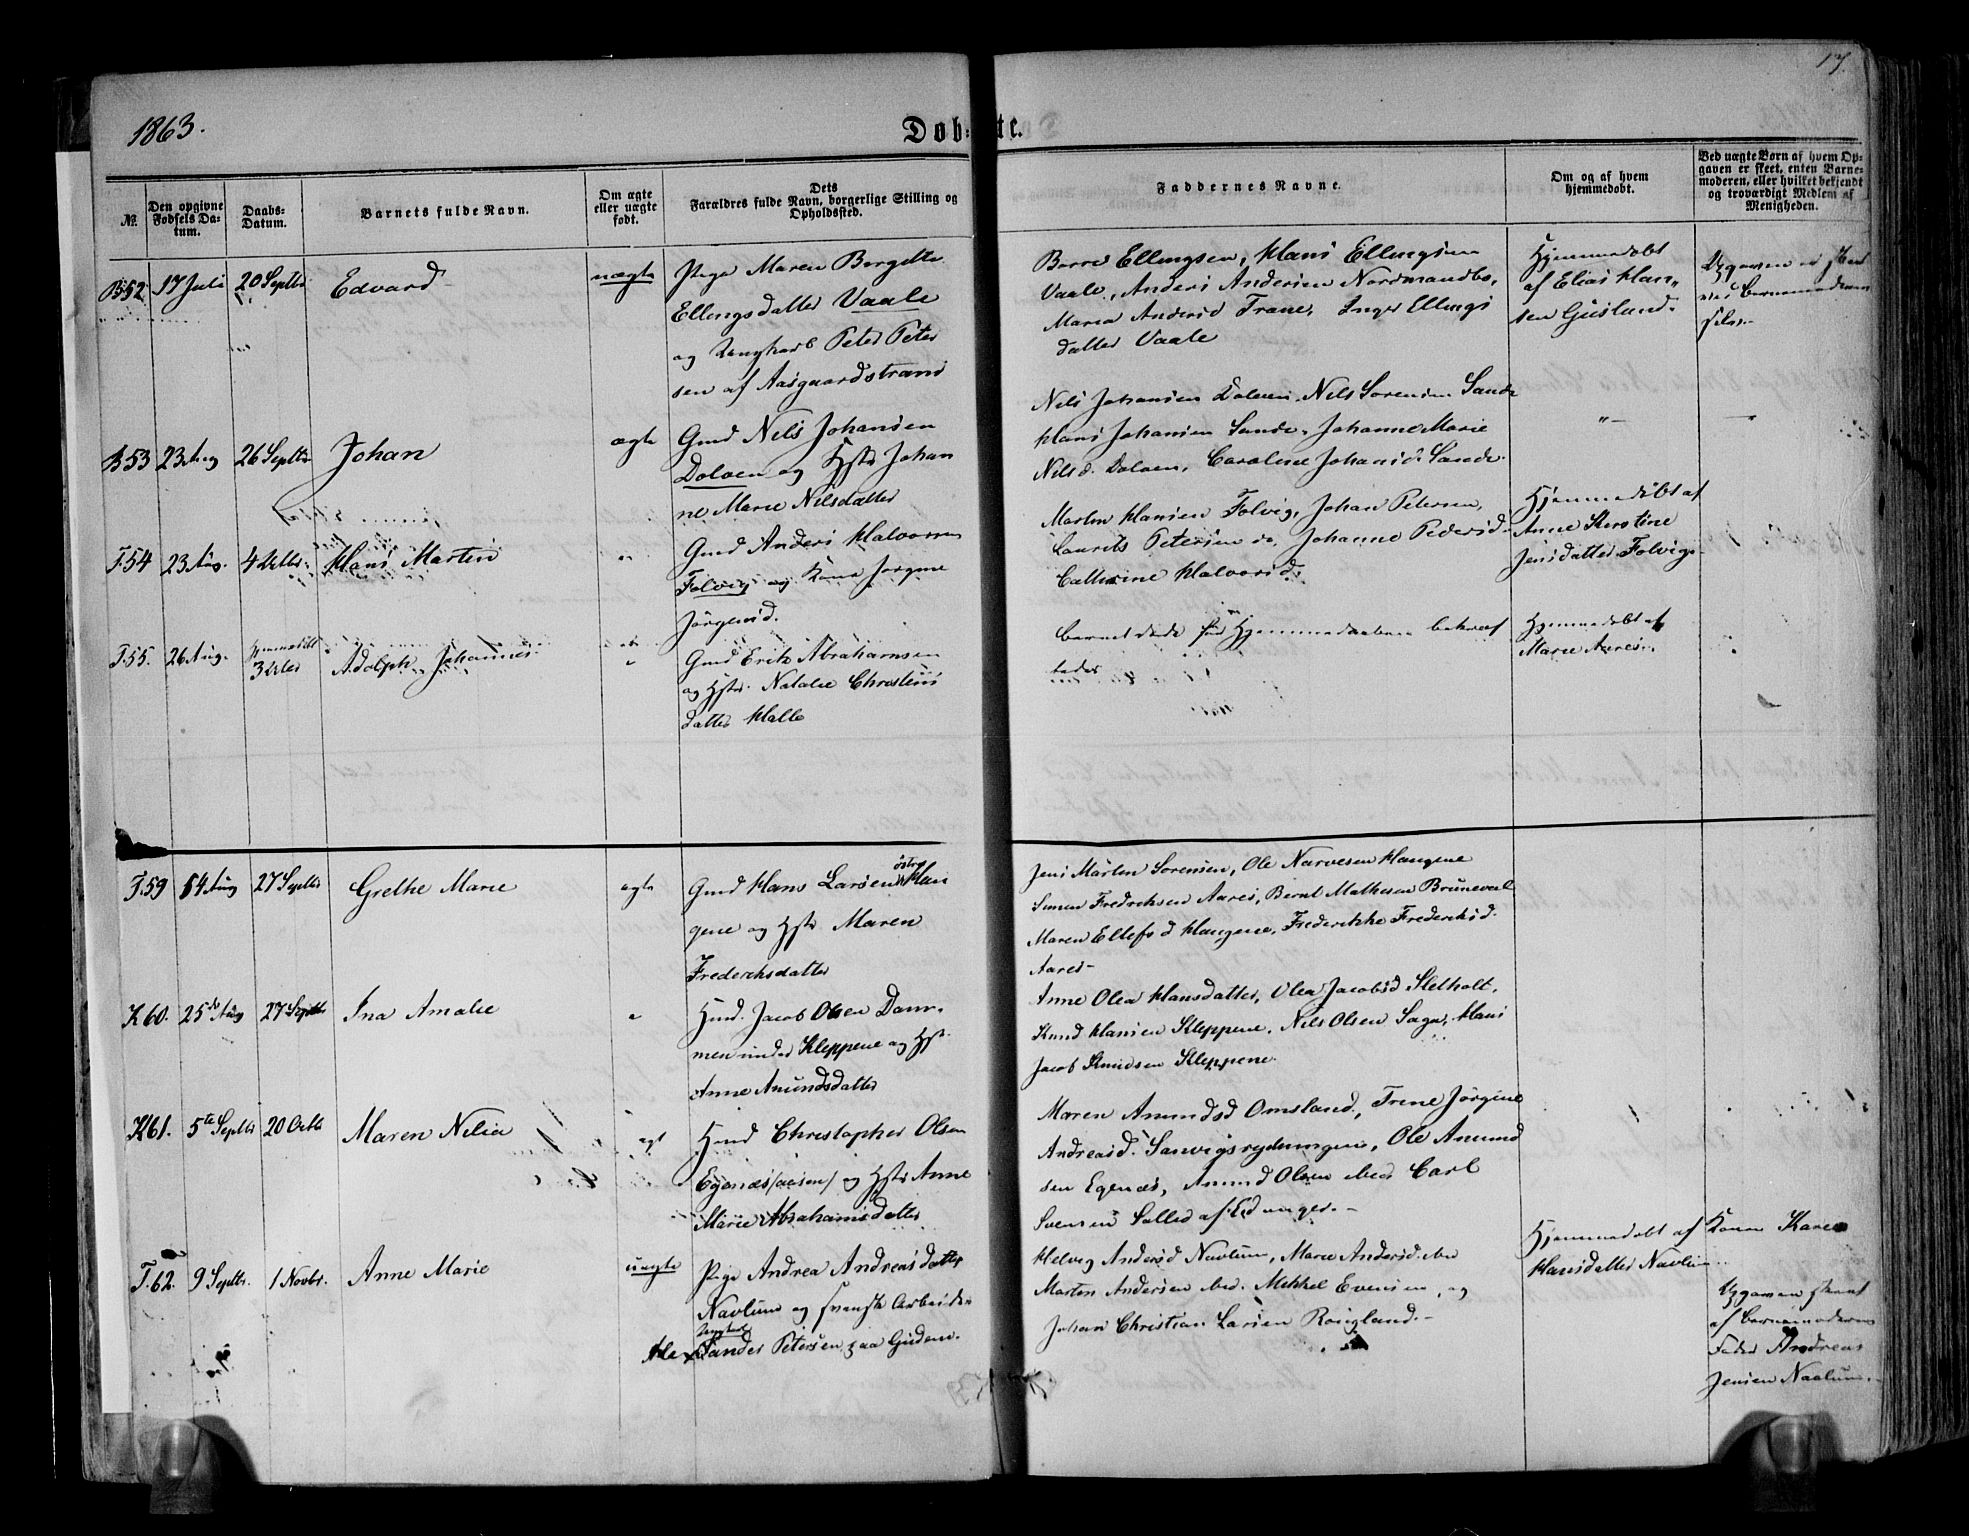 17.
1863.
Døb- te.
No.
Den opgivne Fødsels Da-tum.
Daabs-Datum.
Barnets fulde Navn.
Om ægte eller uægte født.
Dets Forældres fulde Navn, borgerlige Stilling og Opholdssted.
Faddernes Navne.
Om og af hvem hjemmedøbt.
Ved uægte Børn af hvem Op-gaven er skeet, enten Barne-moderen, eller hvilket bekjendt og troværdigt Medlem af Menigheden.
B52. 17 Juli 20 Septbr Edvard uægte
Pige Maren Bergitte
Ellingsdatter Vaale
og Ungkarl Peter Peter
sen af Aasgaardstrand
Borre Ellingsen, Hans Ellingsen
Vaale, Anders Andersen Nordmandbo,
Maria Andersd Trane, Inger Ellings
datter Vaale
Hjemmedøbt
af Elias Han
sen Gusland.
Opgaven er
Barnemoderen
B53 23 Aug 26 Septbr Johan ægte
Gmd Nels Johansen
Dolven og Hstr Johan
ne Marie Nilsdatter
Nels Johansen Dolven, Nils Sorensen Sande
Hans Johansen Sande, Johanne Marie
Nilsd. Dolven, Caroline Johansd. Sande.
"-
T.54 23 Aug. 4 Hans Martin "
Gmd Anders Halvorsen
Folvig og Kone Jorgine
Jörgensd.
Morten Hansen Folvig, Johan Petersen,
Laurits Petersen do, Johanne Pedersd.
Cathrine Halvorsd.
Hjemmedøbt af
Anne Kerstine
Jensdatter Folvig
T.55. 26 Aug. Hjemmedöbt 3 Adolph Johannes "
Gmd Erik Abrahamsen
og Hstr. Natalie Christens
datter Halle
Barnet döde för Hjemmedaaben bekræf
tedes
Hjemmedøbt af
Marie Aares.
T.59 14 Aug 27 Septbr Grethe Marie ægte
Gmd Hans Larsen östre Hau
gene og Hstr Maren
Frederiksdatter
Jens Martin Sorensen, Ole Narvesen Haugene
Simon Fredriksen Aares, Bernt Mathesen Brunevall
Maren Ellefsd Haugene, Frederikke Frederiksd.
Aares-
K60. 25de Aug 27 Septbr Ina Amalie "
Hmd. Jacob Olsen Dam-
men under Kleppene og Hst.
Anne Amundsdatter
Anne Olea Hansdatter, Olea Jacobsd Sletholt,
Knud Hansen Kleppene, Nils Olsen Saga, Hans
Jacob Knudsen Kleppene.
K61. 5te Septbr 20 Octb Maren Nilia ægt
Hmd Christopher Olsen
Egenæs og Hstr Anne
Marie Abrahamsdatter
Maren Amundsd Omsland, Trine Jörgine
Andreasd. Sanvigsrydningen, Ole Amund
sen Egenæs, Amund Olsen ibid Carl
Svensen
T.62. 9 Septbr. 1 Novbr. Anne Marie uægte
Pige Andrea Andreasdatter
Navlum og svensk Arbeider
Ungkarl
Ale xander Petersen paa Gudem.
Helvig Andersd Navlum, Maren Andersd. ibid
Martin Andersen ibid. Mikkel Evensen, og
Johan Christian Larsen Roligland.-
Hjemmedøbt af Konen Karen
Hansdatter Navlum.
Opgaven skeet
af Barnemoderens
Fader Andreas
Jensen Navlum.